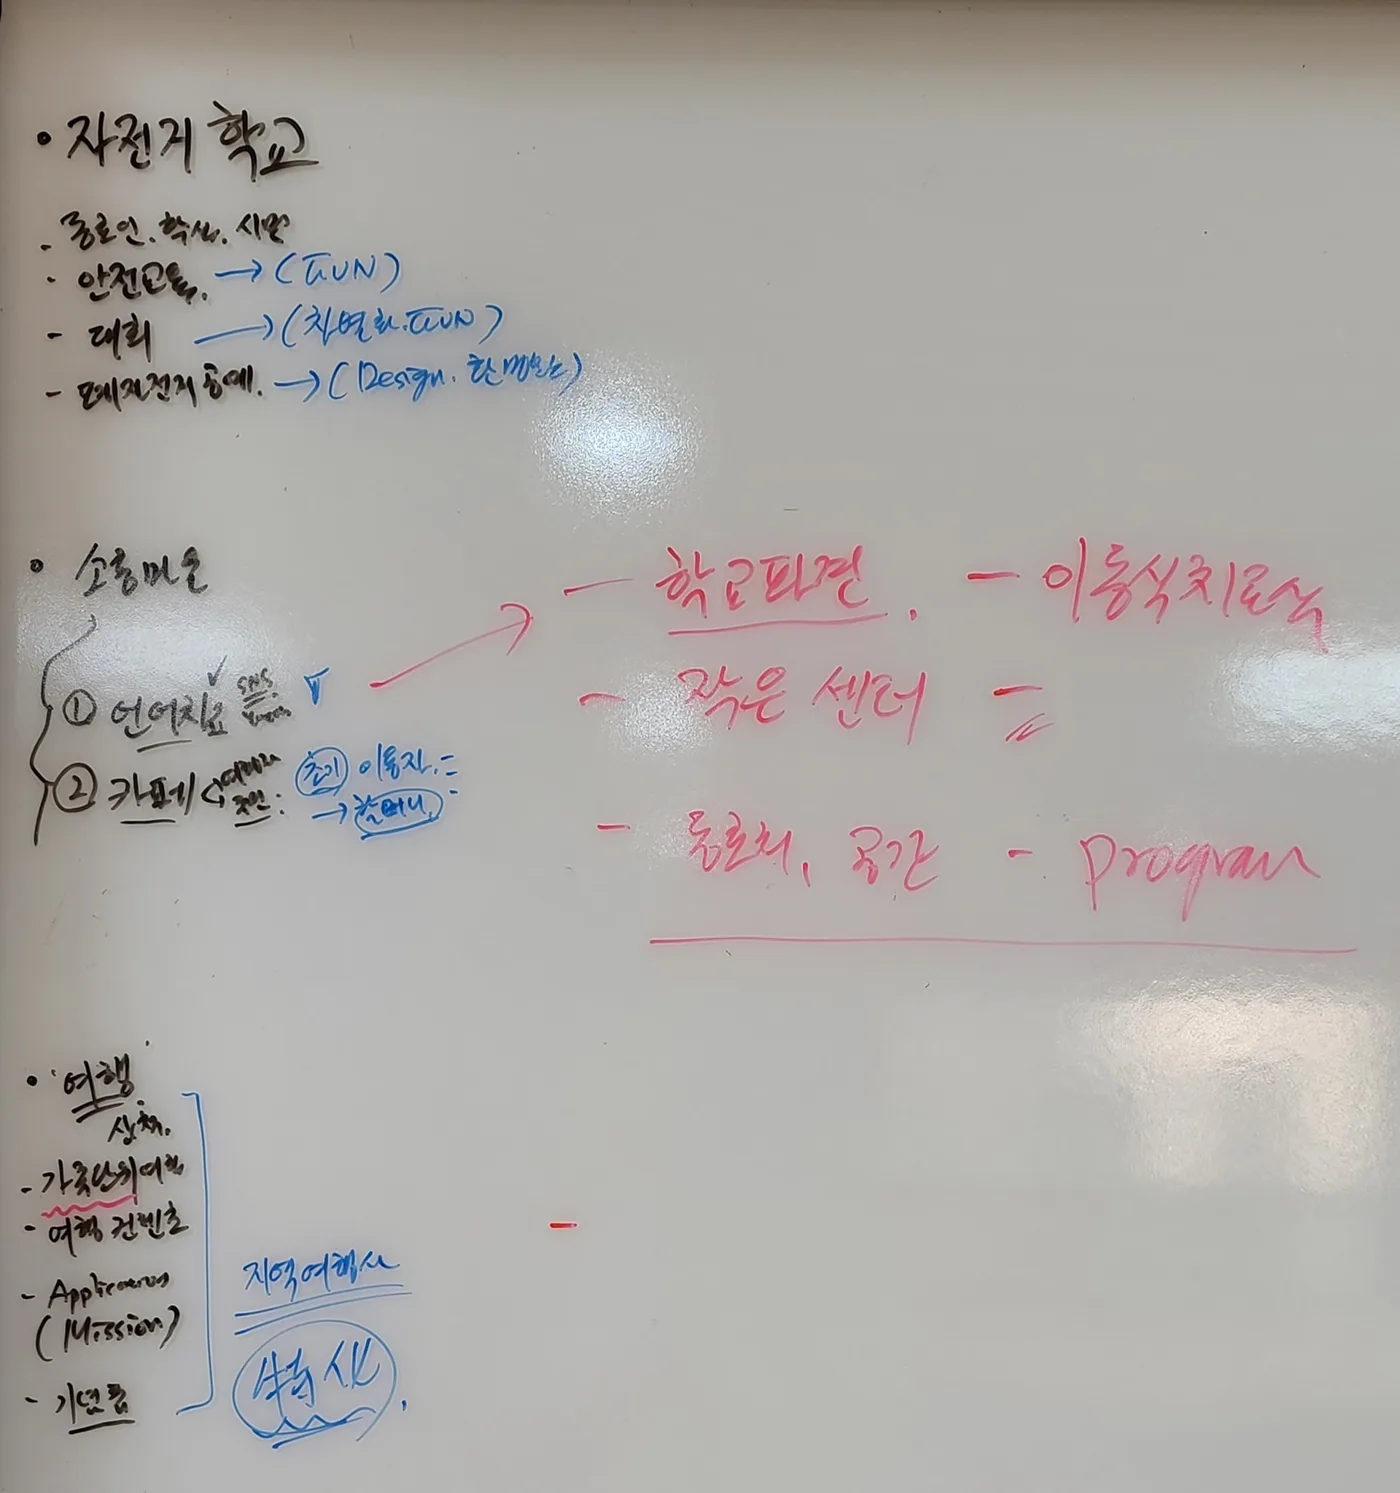 • 자전거 학교
- 동호인. 학생. 시민
- 안전교육. → (FUN)
- 대회 → (차별화. FUN)
- 폐자전거 공예. → (Design.
• 소풍마을
① 언어치료 SNS
② 카페 < 여행자 주민 : 초기 이용자.
→ 할머니.
- 학교파견. - 이동식치료실
- 작은 센터 -
- 공간 - program
• '여행'
산책.
- 가족단위여행
- 여행 컨텐츠
- Application
(Mission)
- 기념품
지역여행사
特化.